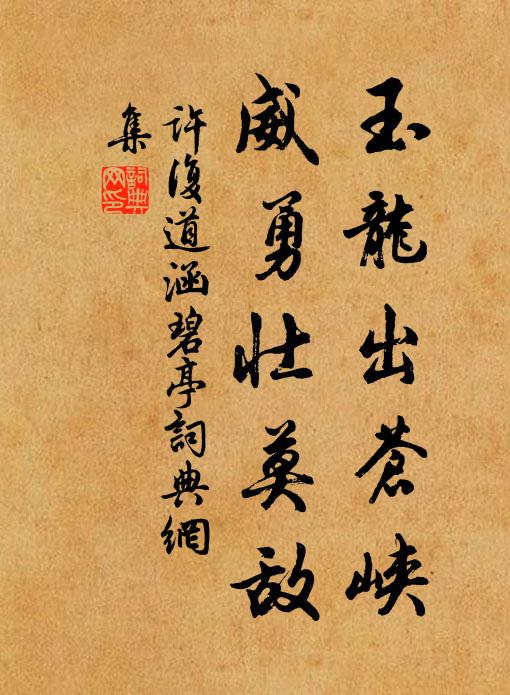 玉龍出蒼峽
威勇壯莫敌
許復道涵碧亭詞典網
集
詞典
网印